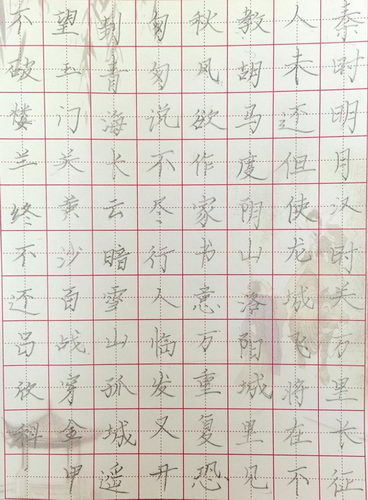 秦时明月汉时关万里长征
人未还但使龙城飞将在不
教胡马度阴山洛阳城里见
秋风欲作家书意万重复恐
匆匆说不尽行人临发又开
到青海长云暗雪山孤城遥
望玉门关黄沙百战穿金甲
不破楼兰终不还吕科